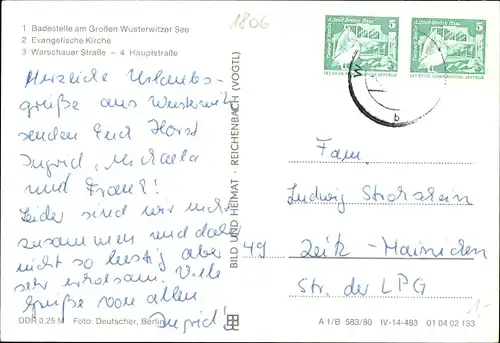 1 Badestelle am Großen Wusterwitzer See
2 Evangelische Kirche
3 Warschauer Straße – 4 Hauptstraße
1806
Herzliche Urlaubs-
grüße aus Wusterwitz
senden Euch Horst
Ingrid, Michaela
und Frank!
Leider sind wir nicht
zusammen und daher
nicht so lustig aber
sehr erholsam. Viele
Grüße von allen
Ingrid!
DDR 0,25 M Foto: Deutscher, Berlin
BILD UND HEIMAT · REICHENBACH (VOGTL)
5
5
Fam.
Ludwig
49 Zeitz-Hainichen
Str. der LPG
1,-
A 1/B 583/80 IV-14-483 01 04 02 133